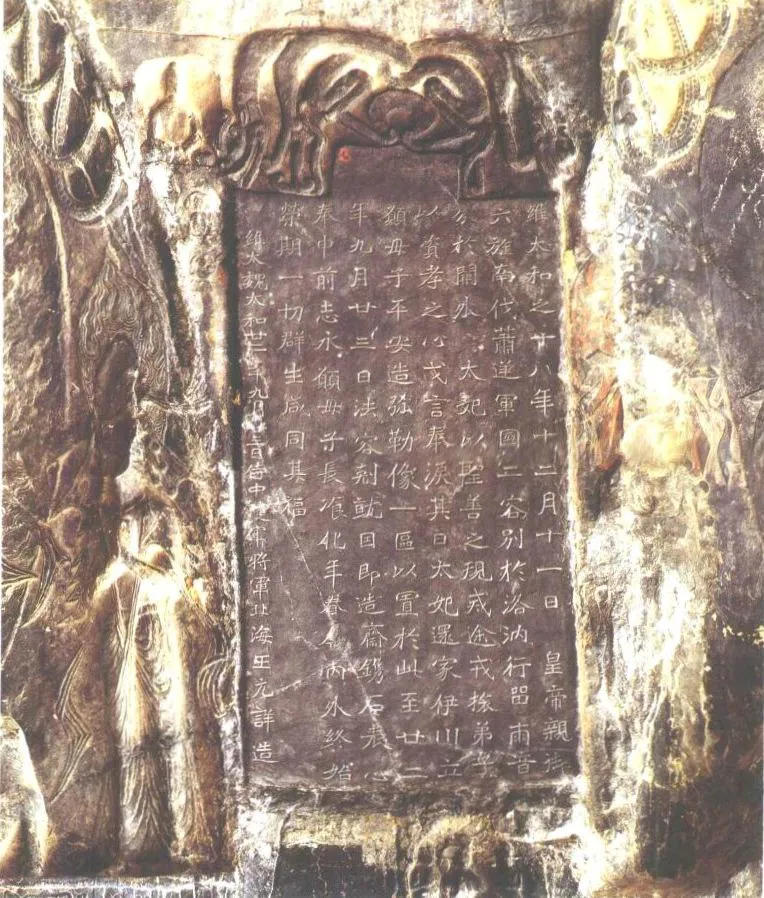 維太和之十八年十二月十一日 皇帝親御
六旌南伐蕭逆軍國二容別於洛汭行留兩音
分於闕外 太妃以聖善之規戒途戎旅弟子
以資孝之心戈言奉淚其日太妃還家伊川立
願母子平安造弥勒像一區以置於此至廿二
年九月廿三日法容剋就因即造齋鐫石表心
奉申前志永願母子長瘳化年眷內外終始
榮期一切群生咸同其福
維大魏太和廿二年九月廿三日侍中護軍將軍北海王元詳造